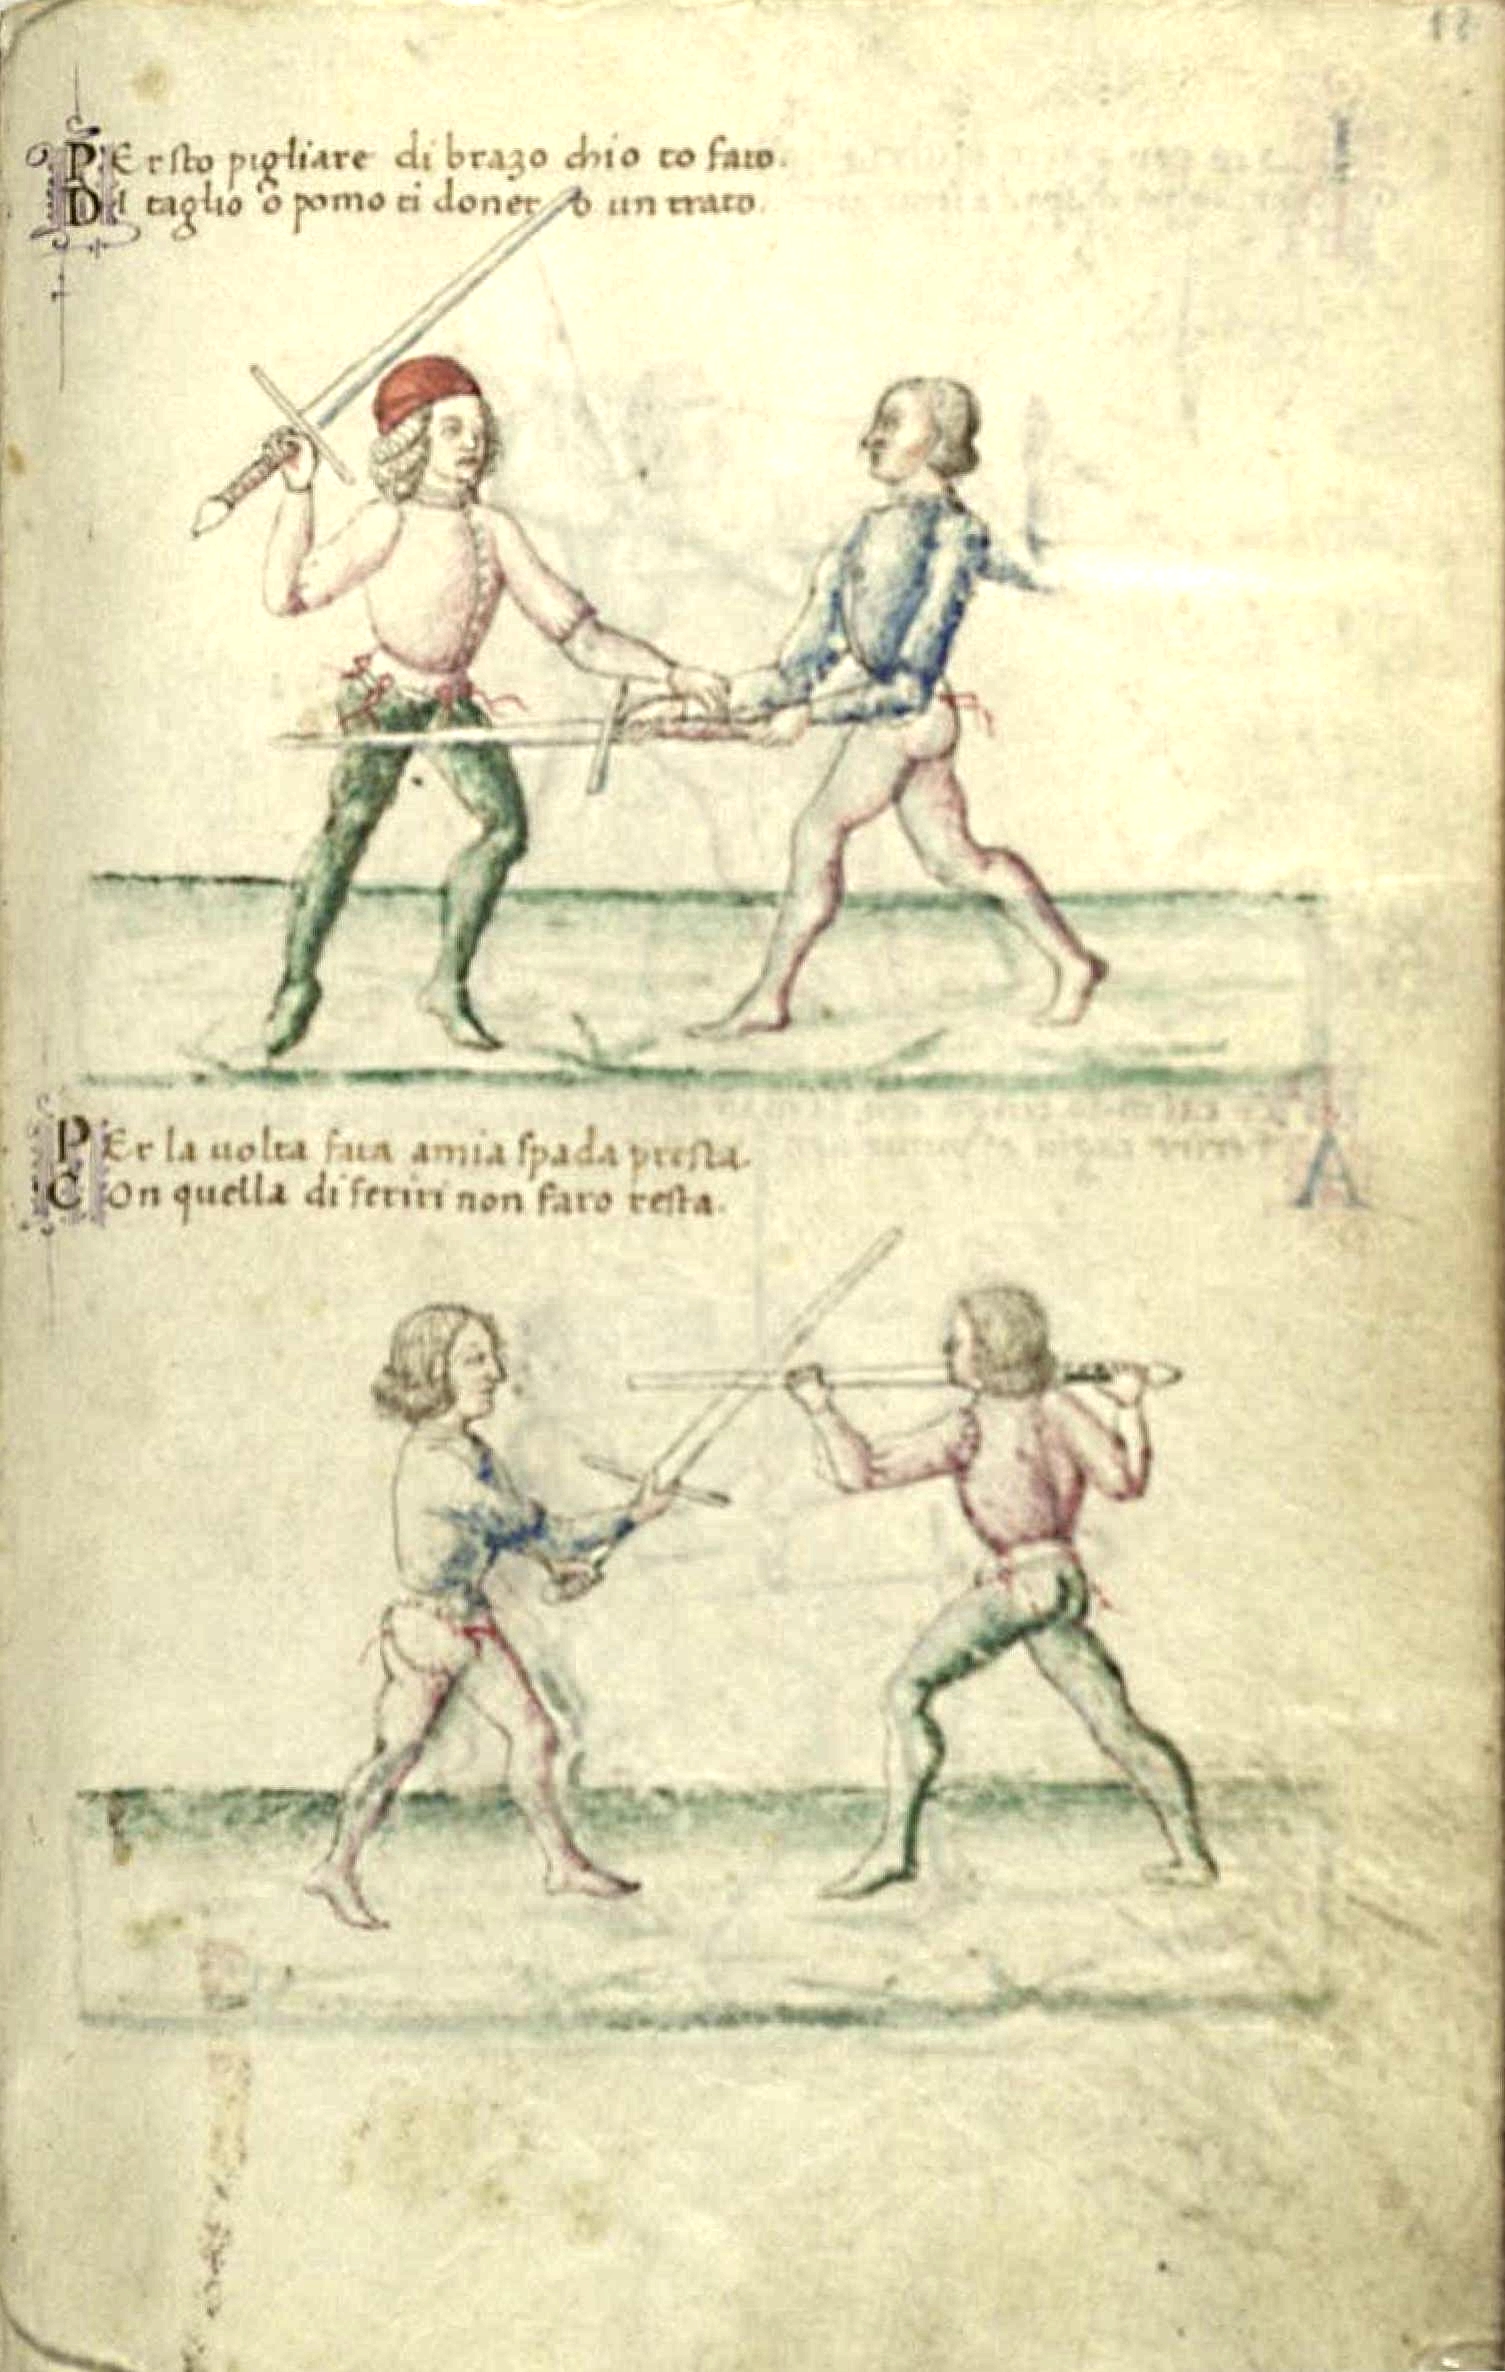 PEr sto pigliare di brazo chio to fato.
DI taglio o pomo ti donero un trato.
PEr la uolta fata amia spada presta.
COn quella di feriri non faro resta.